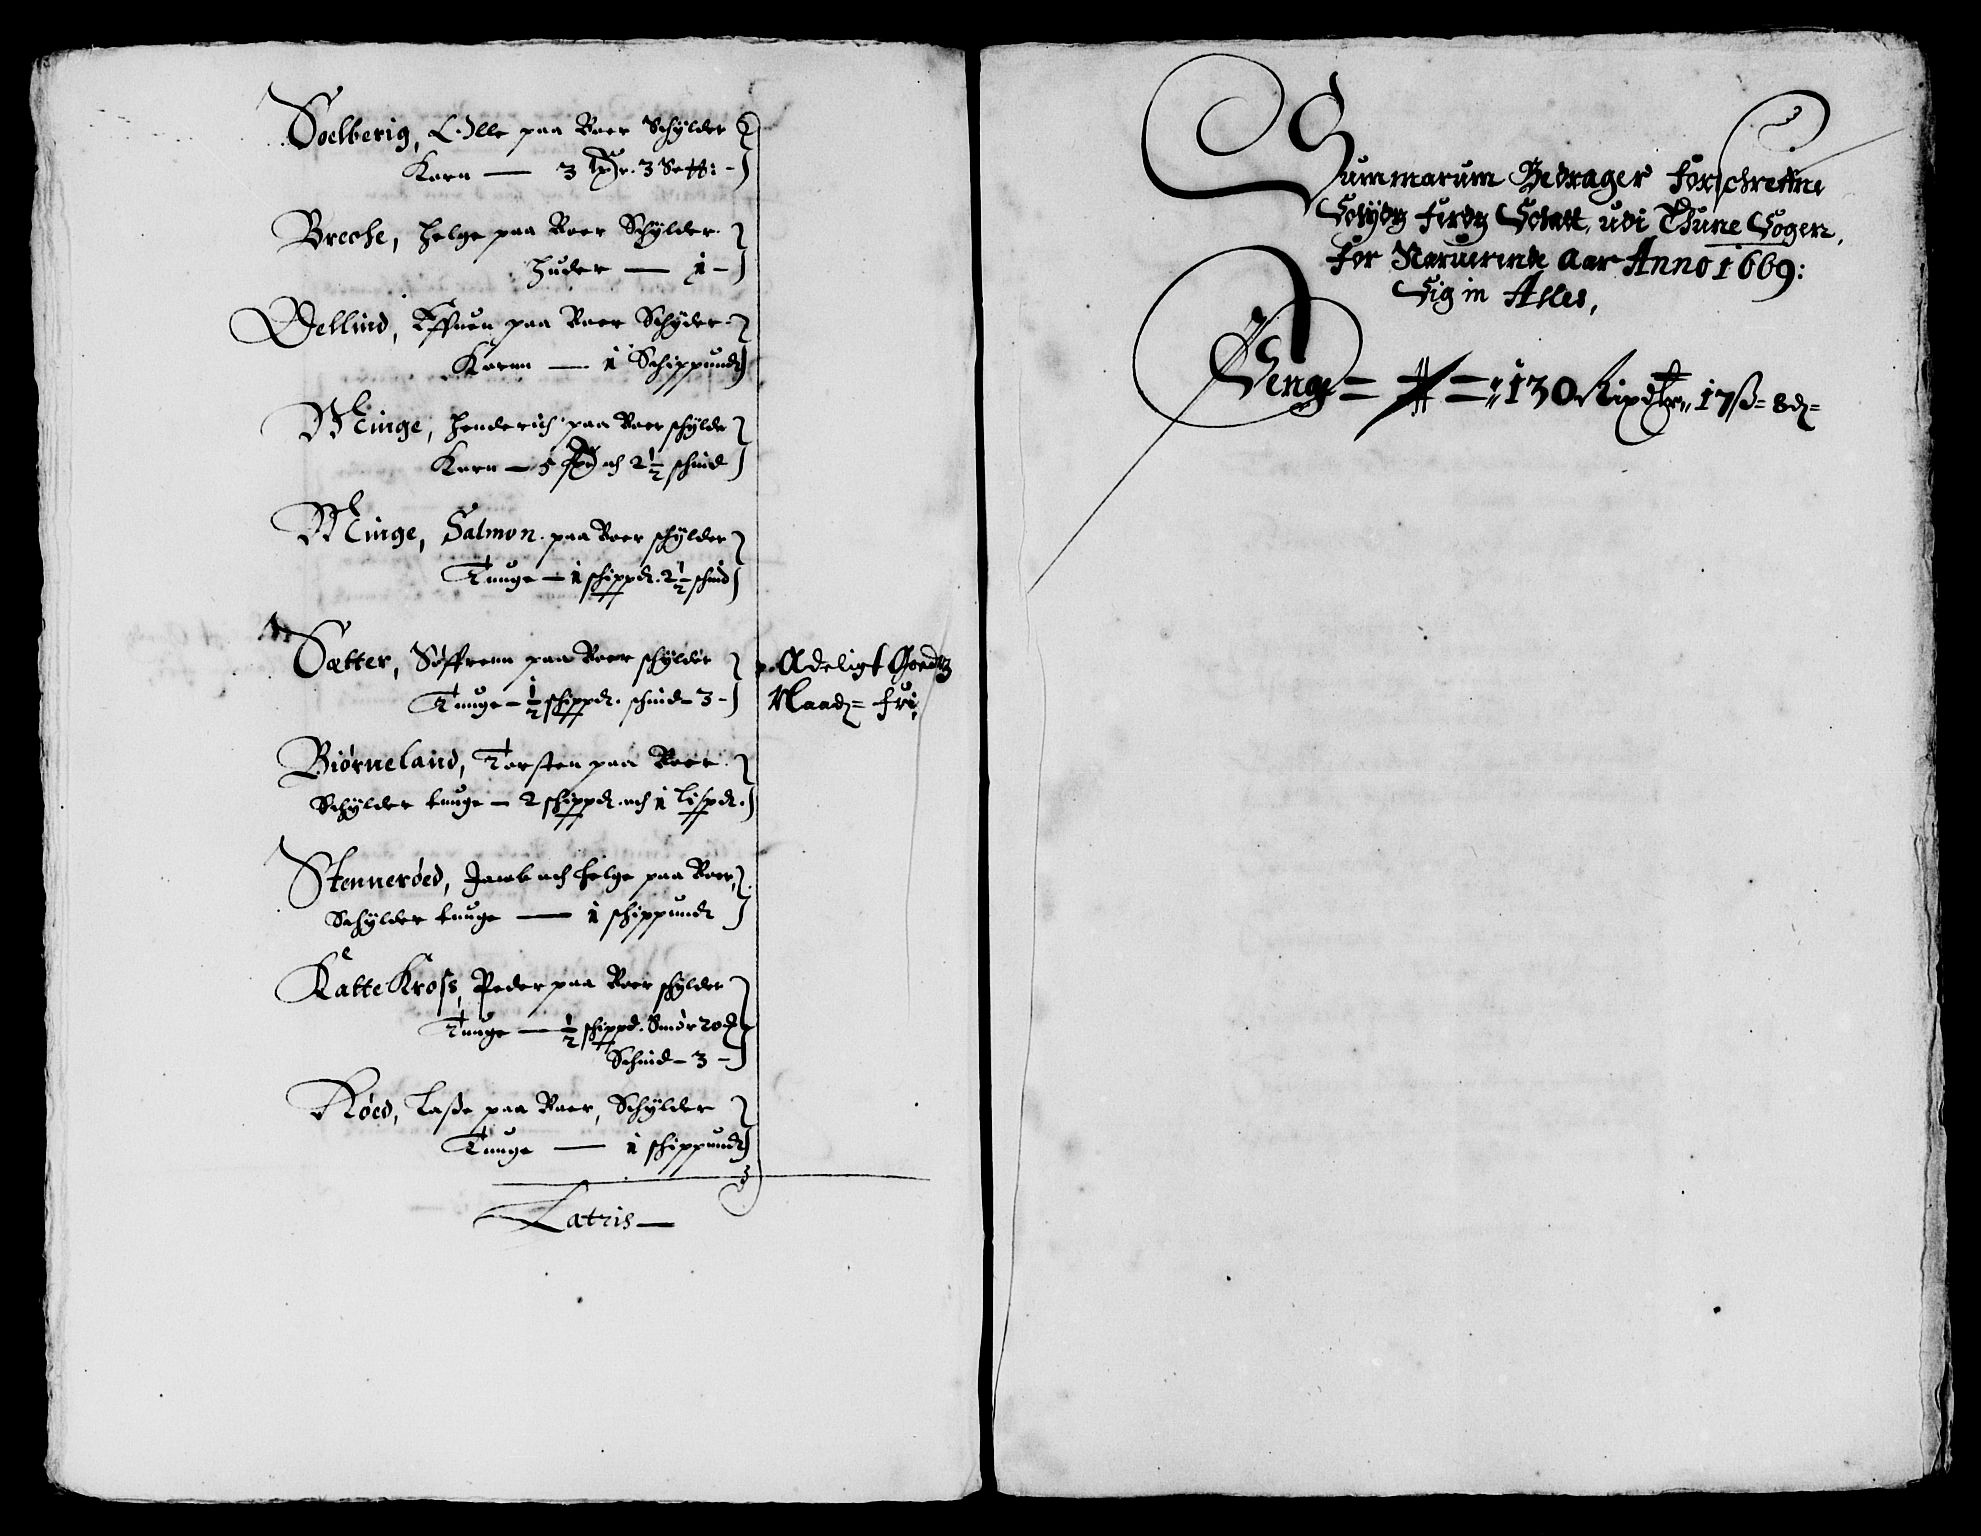 Soelberig, Olle paa Boer Schylder
Korn — 3 3 Sett: -
Breche, Helge paa Boer Schylder
Huder — 1 -
Dellind, Effuen paa Boer Schyder
Kornn — 1 Schippund
Minge, Henderich paa Boer schylder
Korn — 5 och 2 1/2 schind
Minge, Salmon paa Boer schylder
Tunge — 1 schippd. 2 1/2 schind
Sætter, Søffrenn paa Boer schylder
Tunge - 1/2 schippd. schind - 3 -
Adeligt Goedtz
Maad= fri,
Biørneland, Torsten paa Boer
Schylder tunge — 2 schippd. och 1 lispd.
Stennerøed, Jacob och Helge paa Boer,
Schylder tunge — 1 schippund
Katte Kross, Peder paa Boer schylder
Tunge — 1/2 schippd. Smør 20
Schind - 3 -
Røed, Lasse paa Boer, Schylder
Tunge — 1 schippund
Latris —
Summarum Bedrager forschreffne
Schatt, udi Thune Sogen,
for Nærverende Aar Anno 1669:
Sig in Alles,
Penge = = 130 Rixdlr, 17 ß = 8 d =